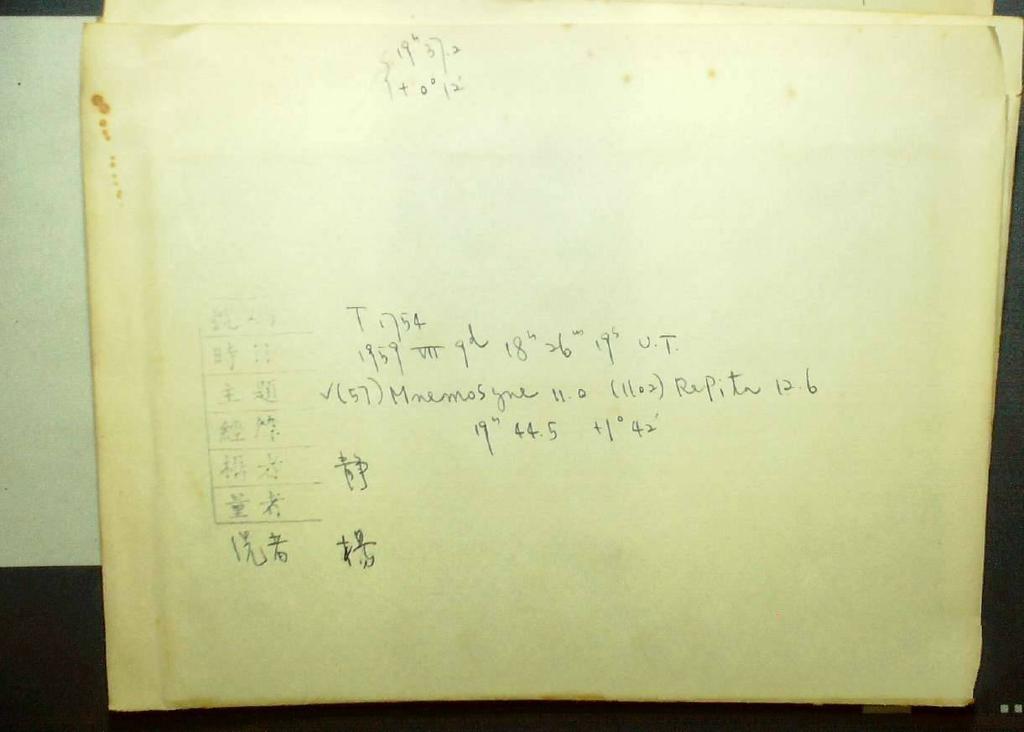 19ʰ 37.2
+ 0° 12′
號碼 T 1754
時日 1959 VII 9ᵈ 18ʰ 26ᵐ 19ˢ U.T.
主題 √(57) Mnemosyne 11.0 (1102) Repita 12.6
經緯 19ʰ 44.5 +1° 42′
攝者 靜
量者
洗者 楊